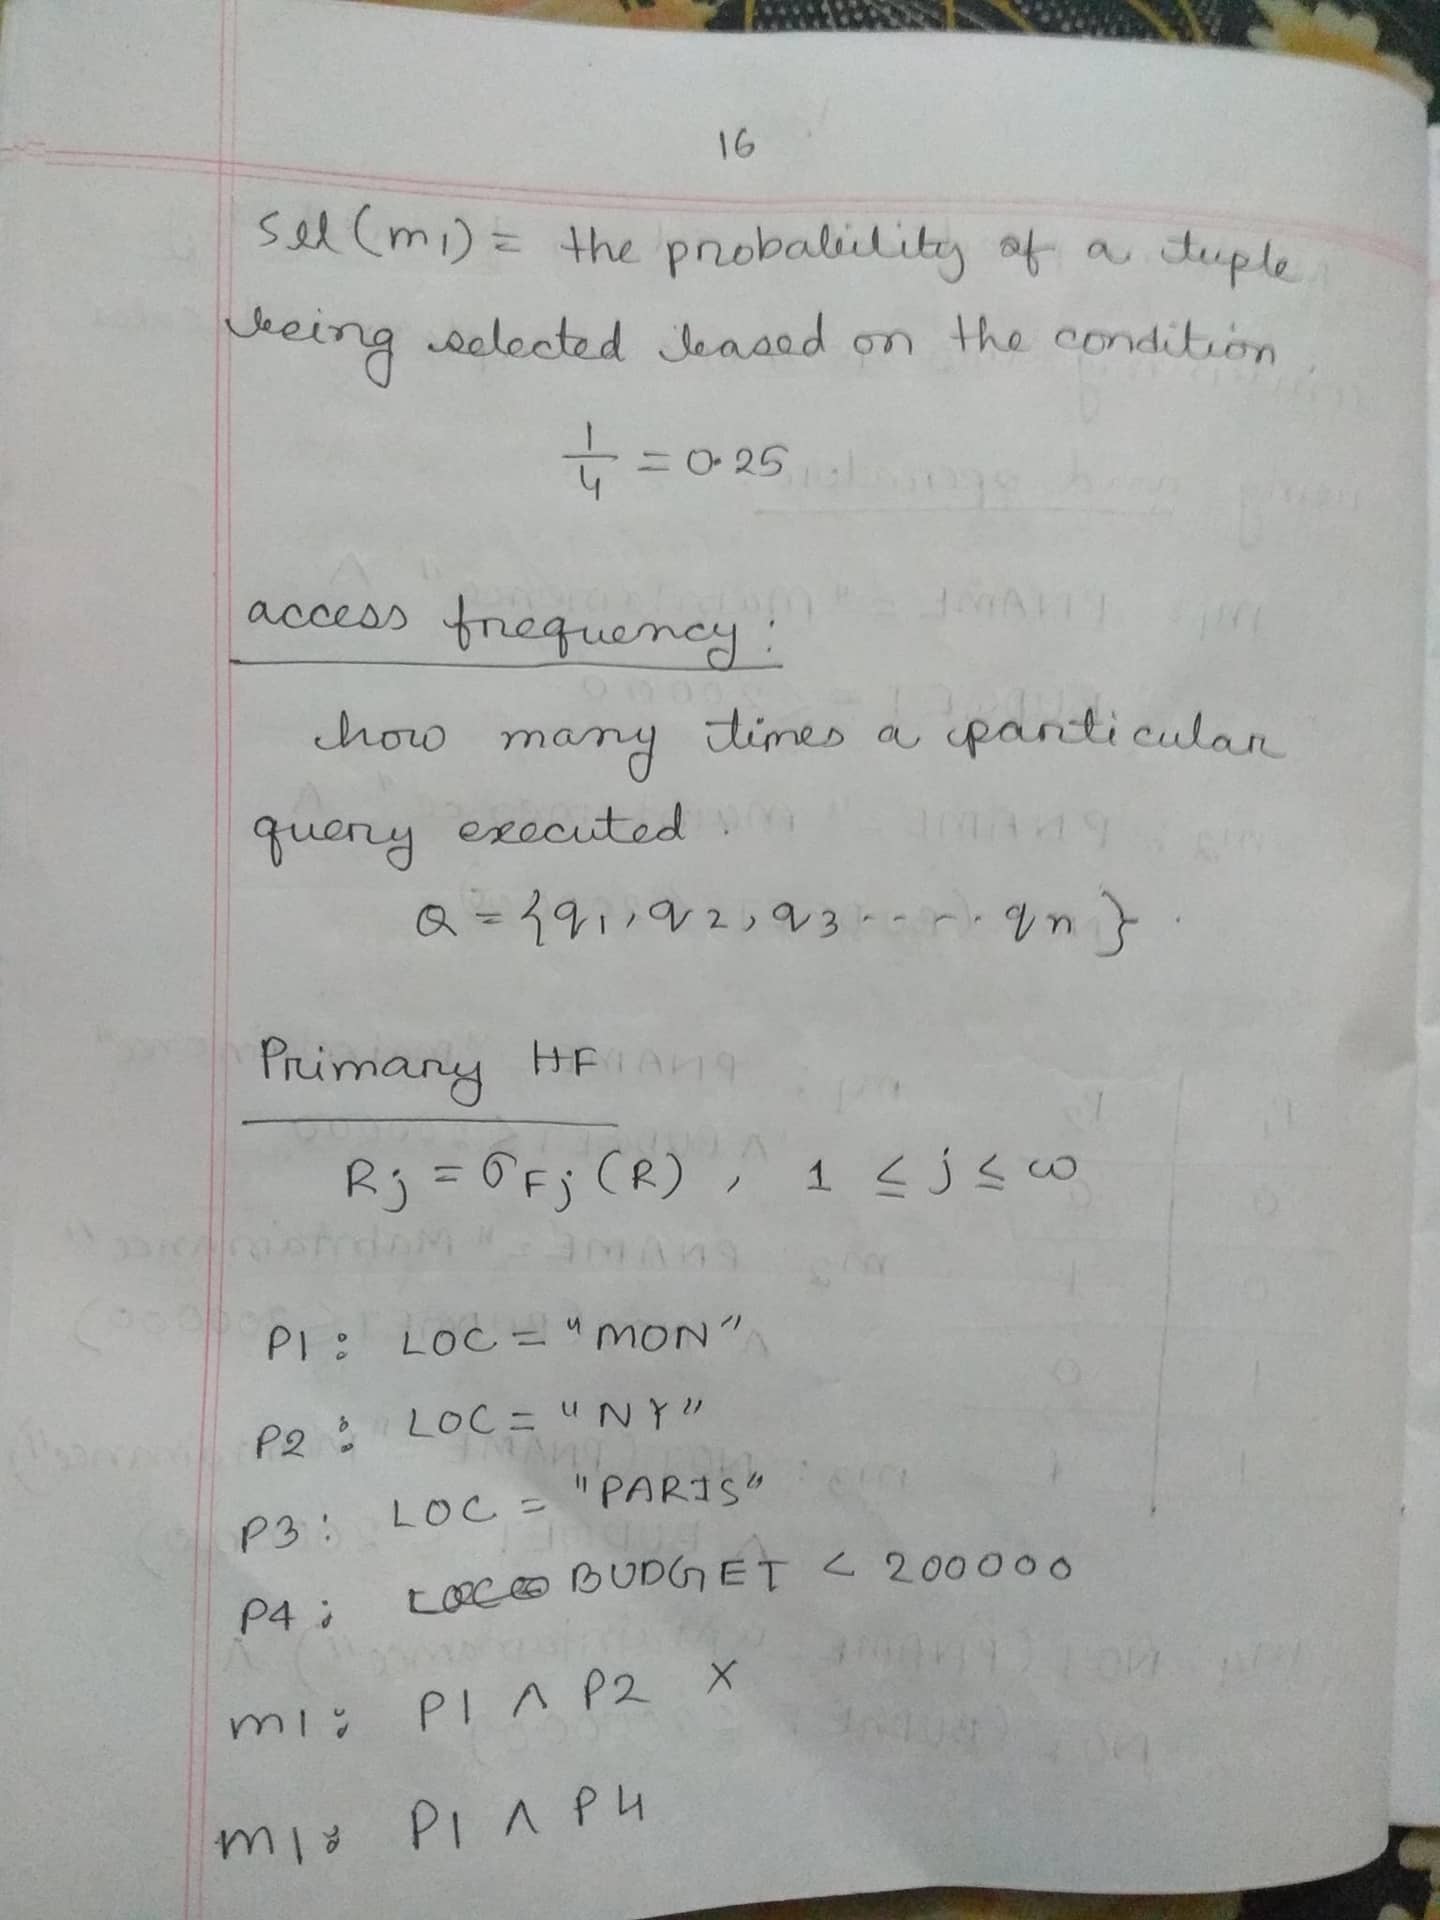 16
sel (m1) = the probability of a tuple
being selected based on the condition
1/4 = 0.25
access frequency:
how many times a particular
query executed.
Q = {q1, q2, q3 ..... qn}.
Primary HF
Rj = σFj (R) , 1 ≤ j ≤ ω
P1: LOC = "MON"
P2: LOC = "NY"
P3: LOC = "PARIS"
P4: BUDGET < 200000
m1: P1 ∧ P2 X
m1: P1 ∧ P4